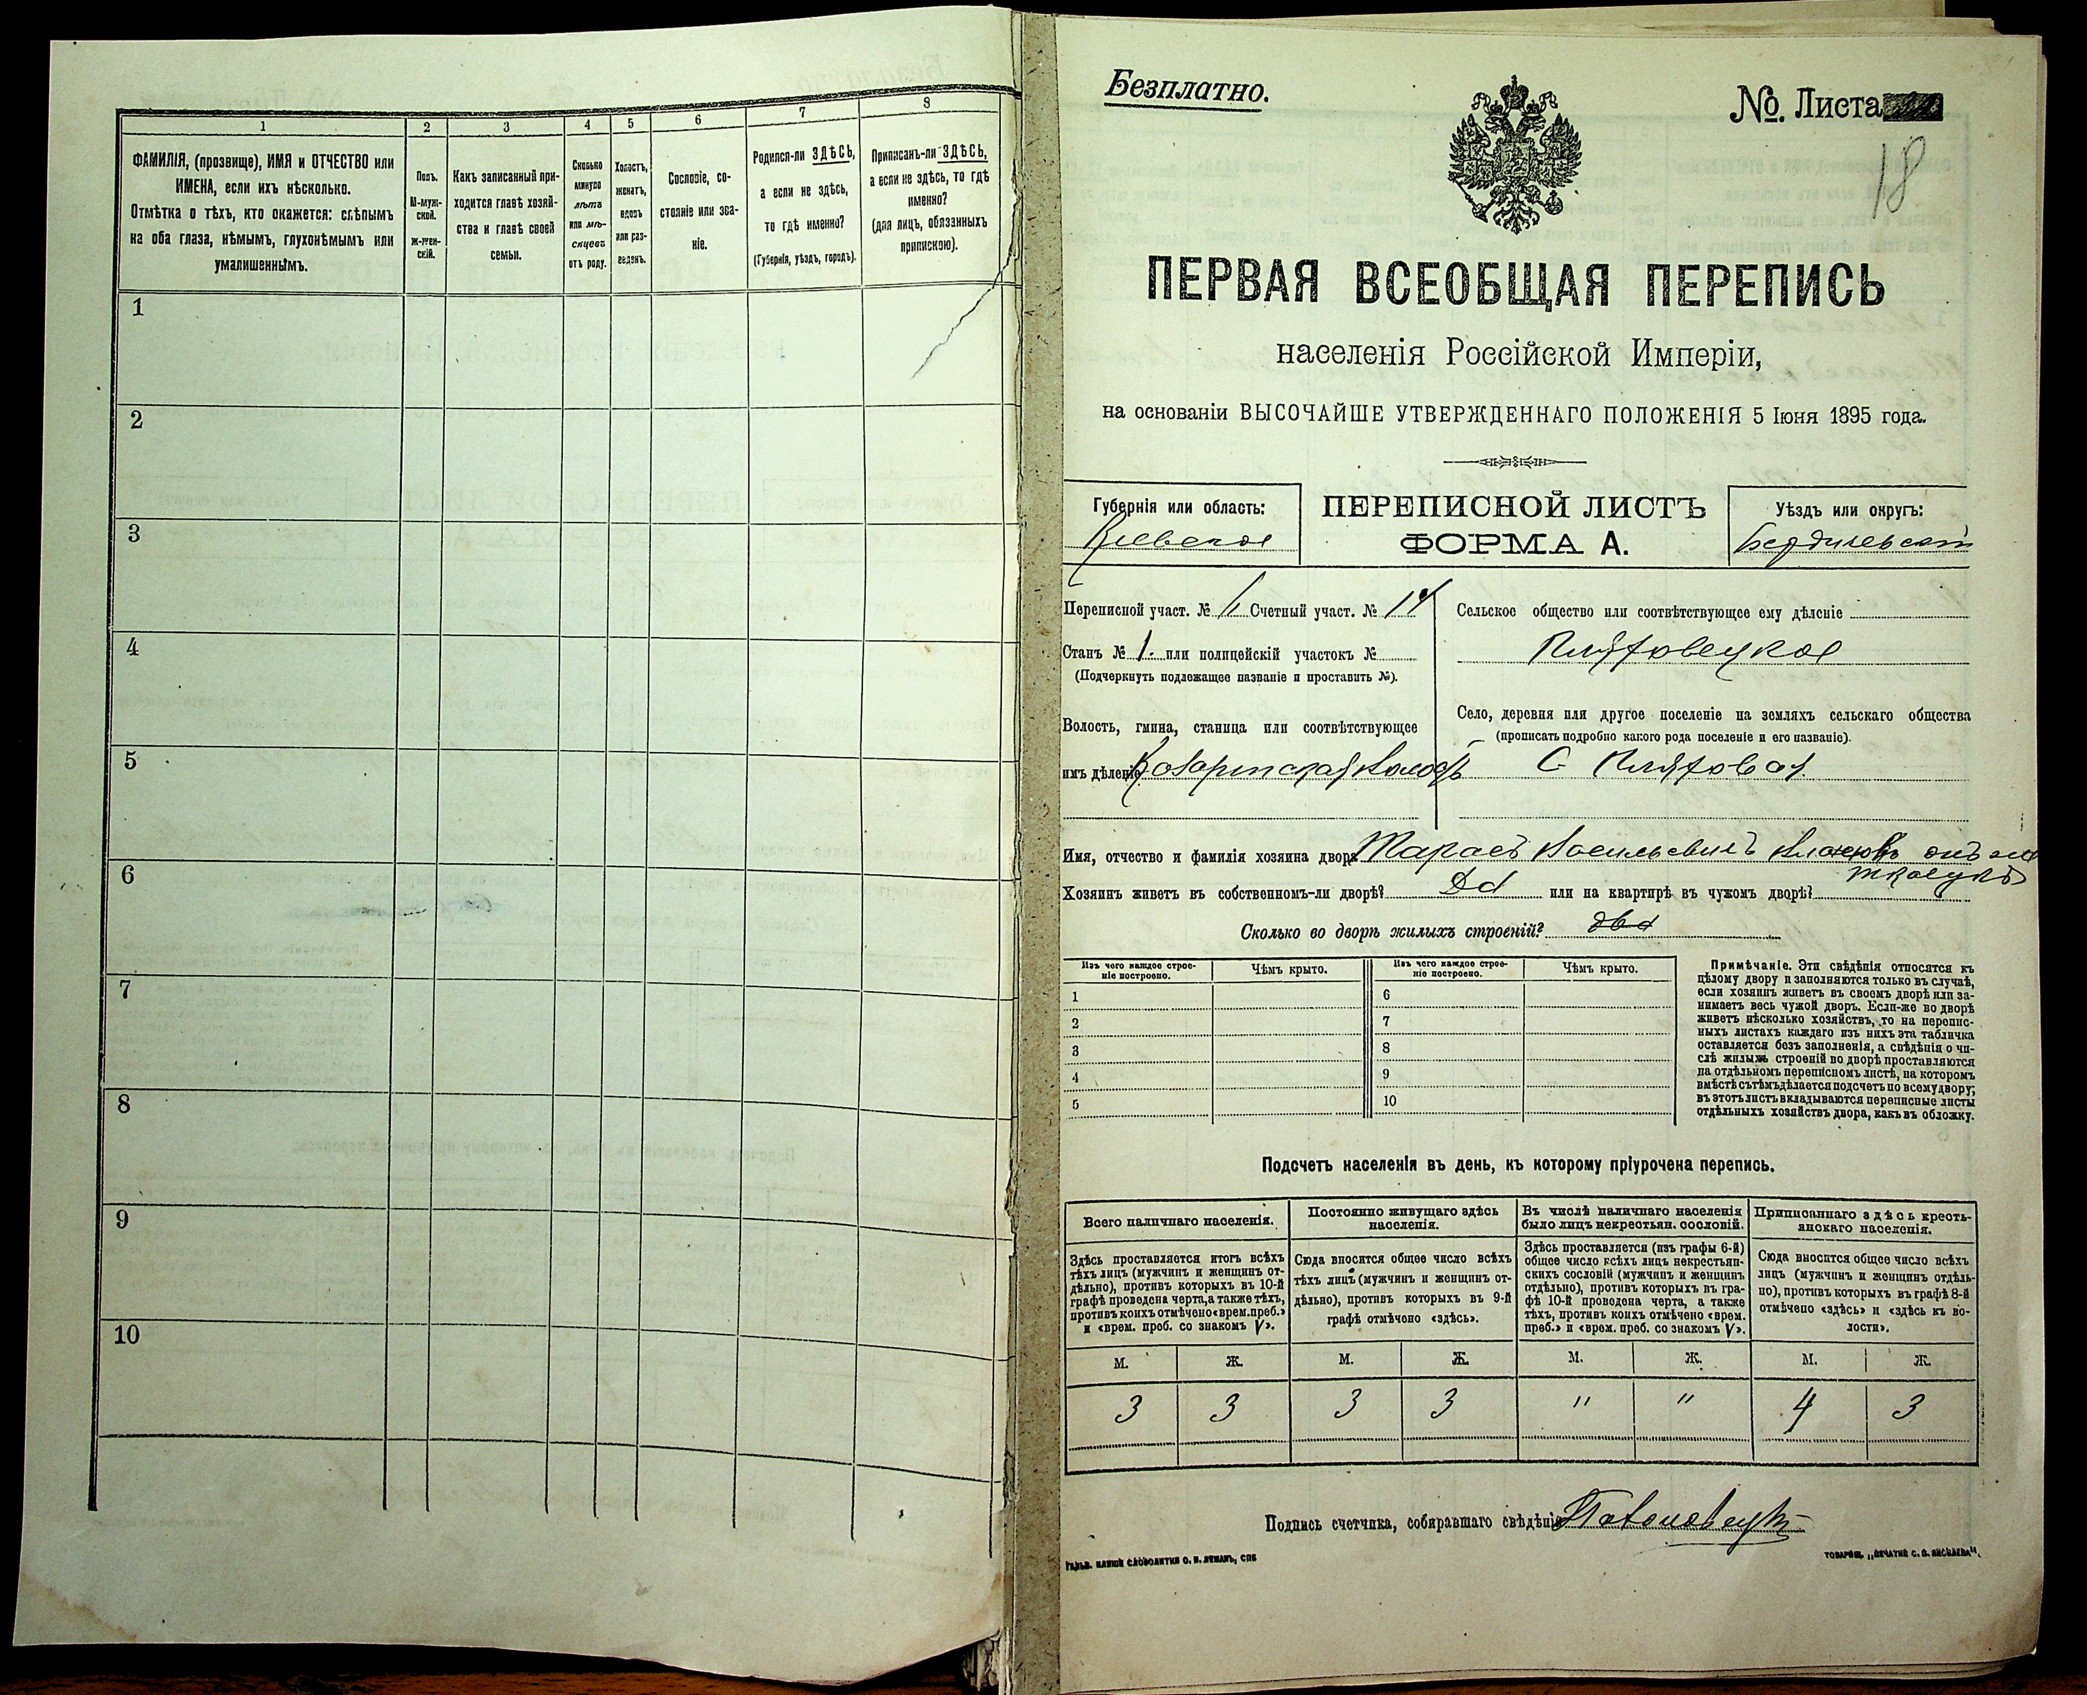 1 2 3 4 5 6 7 8
ФАМИЛІЯ, (прозвище), ИМЯ и ОТЧЕСТВО или
ИМЕНА, если ихъ нѣсколько.
Отмѣтка о тѣхъ, кто окажется: слѣпымъ
на оба глаза, нѣмымъ, глухонѣмымъ или
умалишеннымъ.
Полъ.
М-муж-
ской.
ж-жен-
скій.
Какъ записанный при-
ходится главѣ хозяй-
ства и главѣ своей
семьи.
Сколько
минуло
лѣтъ
или мѣ-
сяцевъ
отъ роду.
Холостъ,
женатъ,
вдовъ
или раз-
веденъ.
Сословіе, со-
стояніе или зва-
ніе.
Родился-ли ЗДѢСЬ,
а если не здѣсь,
то гдѣ именно?
(Губернія, уѣздъ, городъ).
Приписанъ-ли ЗДѢСЬ,
а если не здѣсь, то гдѣ
именно?
(для лицъ, обязанныхъ
припискою).
1
2
3
4
5
6
7
8
9
10
Безплатно.
№. Листа
18
ПЕРВАЯ ВСЕОБЩАЯ ПЕРЕПИСЬ
населенія Россійской Имперіи,
на основаніи ВЫСОЧАЙШЕ УТВЕРЖДЕННАГО ПОЛОЖЕНІЯ 5 Іюня 1895 года.
Губернія или область:
Кіевская
ПЕРЕПИСНОЙ ЛИСТЪ
ФОРМА А.
Уѣздъ или округъ:
Бердичевскій
Переписной участ. № 1 Счетный участ. № 14
Станъ № 1. или полицейскій участокъ №
(Подчеркнуть подлежащее названіе и проставить №).
Волость, гмина, станица или соотвѣтствующее
имъ дѣленіе
Сельское общество или соотвѣтствующее ему дѣленіе
Пляховецкое
Село, деревня или другое поселеніе на земляхъ сельскаго общества
(прописать подробно какого рода поселеніе и его названіе).
С. Пляховая
Имя, отчество и фамилія хозяина двора Тарасъ Васильевичъ
Хозяинъ живетъ въ собственномъ-ли дворѣ? Да или на квартирѣ въ чужомъ дворѣ?
Сколько во дворѣ жилыхъ строеній? два
Изъ чего каждое строе-
ніе построено.
Чѣмъ крыто.
Изъ чего каждое строе-
ніе построено.
Чѣмъ крыто.
1 6
2 7
3 8
4 9
5 10
Примѣчаніе. Эти свѣдѣнія относятся къ
цѣлому двору и заполняются только въ случаѣ,
если хозяинъ живетъ въ своемъ дворѣ или за-
нимаетъ весь чужой дворъ. Если-же во дворѣ
живетъ нѣсколько хозяйствъ, то на перепис-
ныхъ листахъ каждаго изъ нихъ эта табличка
оставляется безъ заполненія, а свѣдѣнія о чи-
слѣ жилыхъ строеній во дворѣ проставляются
на отдѣльномъ переписномъ листѣ, на которомъ
вмѣстѣ съ тѣмъ дѣлается подсчетъ по всему двору;
въ этотъ листъ вкладываются переписные листы
отдѣльныхъ хозяйствъ двора, какъ въ обложку.
Подсчетъ населенія въ день, къ которому пріурочена перепись.
Всего наличнаго населенія.
Здѣсь проставляется итогъ всѣхъ
тѣхъ лицъ (мужчинъ и женщинъ от-
дѣльно), противъ которыхъ въ 10-й
графѣ проведена черта, а также тѣхъ,
противъ коихъ отмѣчено «врем. преб.»
и «врем. преб. со знакомъ V».
Постоянно живущаго здѣсь
населенія.
Сюда вносится общее число всѣхъ
тѣхъ лицъ (мужчинъ и женщинъ от-
дѣльно), противъ которыхъ въ 9-й
графѣ отмѣчено «здѣсь».
Въ числѣ наличнаго населенія
было лицъ некрестьян. сословій.
Здѣсь проставляется (изъ графы 6-й)
общее число всѣхъ лицъ некрестьян-
скихъ сословій (мужчинъ и женщинъ
отдѣльно), противъ которыхъ въ гра-
фѣ 10-й проведена черта, а также
тѣхъ, противъ коихъ отмѣчено «врем.
преб.» и «врем. преб. со знакомъ V».
Приписаннаго здѣсь кресть-
янскаго населенія.
Сюда вносится общее число всѣхъ
лицъ (мужчинъ и женщинъ отдѣль-
но), противъ которыхъ въ графѣ 8-й
отмѣчено «здѣсь» и «здѣсь къ во-
лости».
М. Ж. М. Ж. М. Ж. М. Ж.
3 3 3 3 " " 4 3
Подпись счетчика, собиравшаго свѣдѣнія
ТОВАРИЩ. „ПЕЧАТНЯ С. П. ЯКОВЛЕВА“.